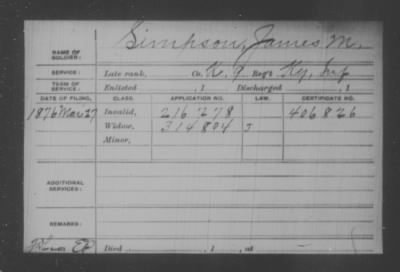 Simpson, James M.
NAME OF SOLDIER:
SERVICE: Late rank, Co. K, 9 Reg't Ky. Inf
TERM OF SERVICE: Enlisted , 1 Discharged , 1
DATE OF FILING. CLASS. APPLICATION NO. LAW. CERTIFICATE NO.
1876 Mar 27 Invalid, 216778 406826
Widow, 314804 J
Minor,
ADDITIONAL SERVICES:
REMARKS:
Died , 1 , at